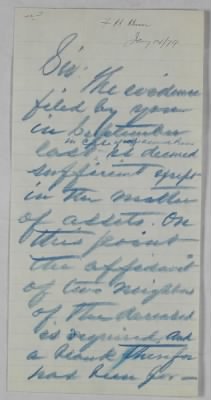 Jany
Sir: The evidence
filed by you
in September
last
is deemed
sufficient except
in the matter
of assets. On
this point
the affidavit
of two neighbors
of the deceased
is required, and
a blank therefor
has been for-